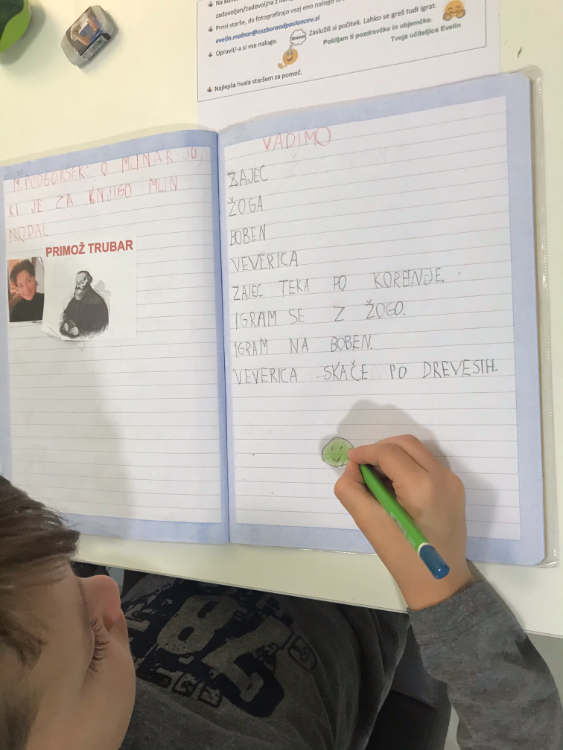 zadovoljen/zadovoljna z
Prosi starše, da fotografirajo vsaj eno nalogo
Opravil/-a si vse naloge.
Bravo! Zaslužiš si počitek. Lahko se greš tudi igrat.
Pošiljam ti pozdravčke in objemčke.
Tvoja učiteljica Evelin
Najlepša hvala staršem za pomoč.
M. PODGORŠEK: O MLINARJU,
KI JE ZA KNJIGO MLIN
PRODAL
PRIMOŽ TRUBAR
VADIMO
ZAJEC
ŽOGA
BOBEN
VEVERICA
ZAJEC TEKA PO KORENJE.
IGRAM SE Z ŽOGO.
IGRAM NA BOBEN.
VEVERICA SKAČE PO DREVESIH.